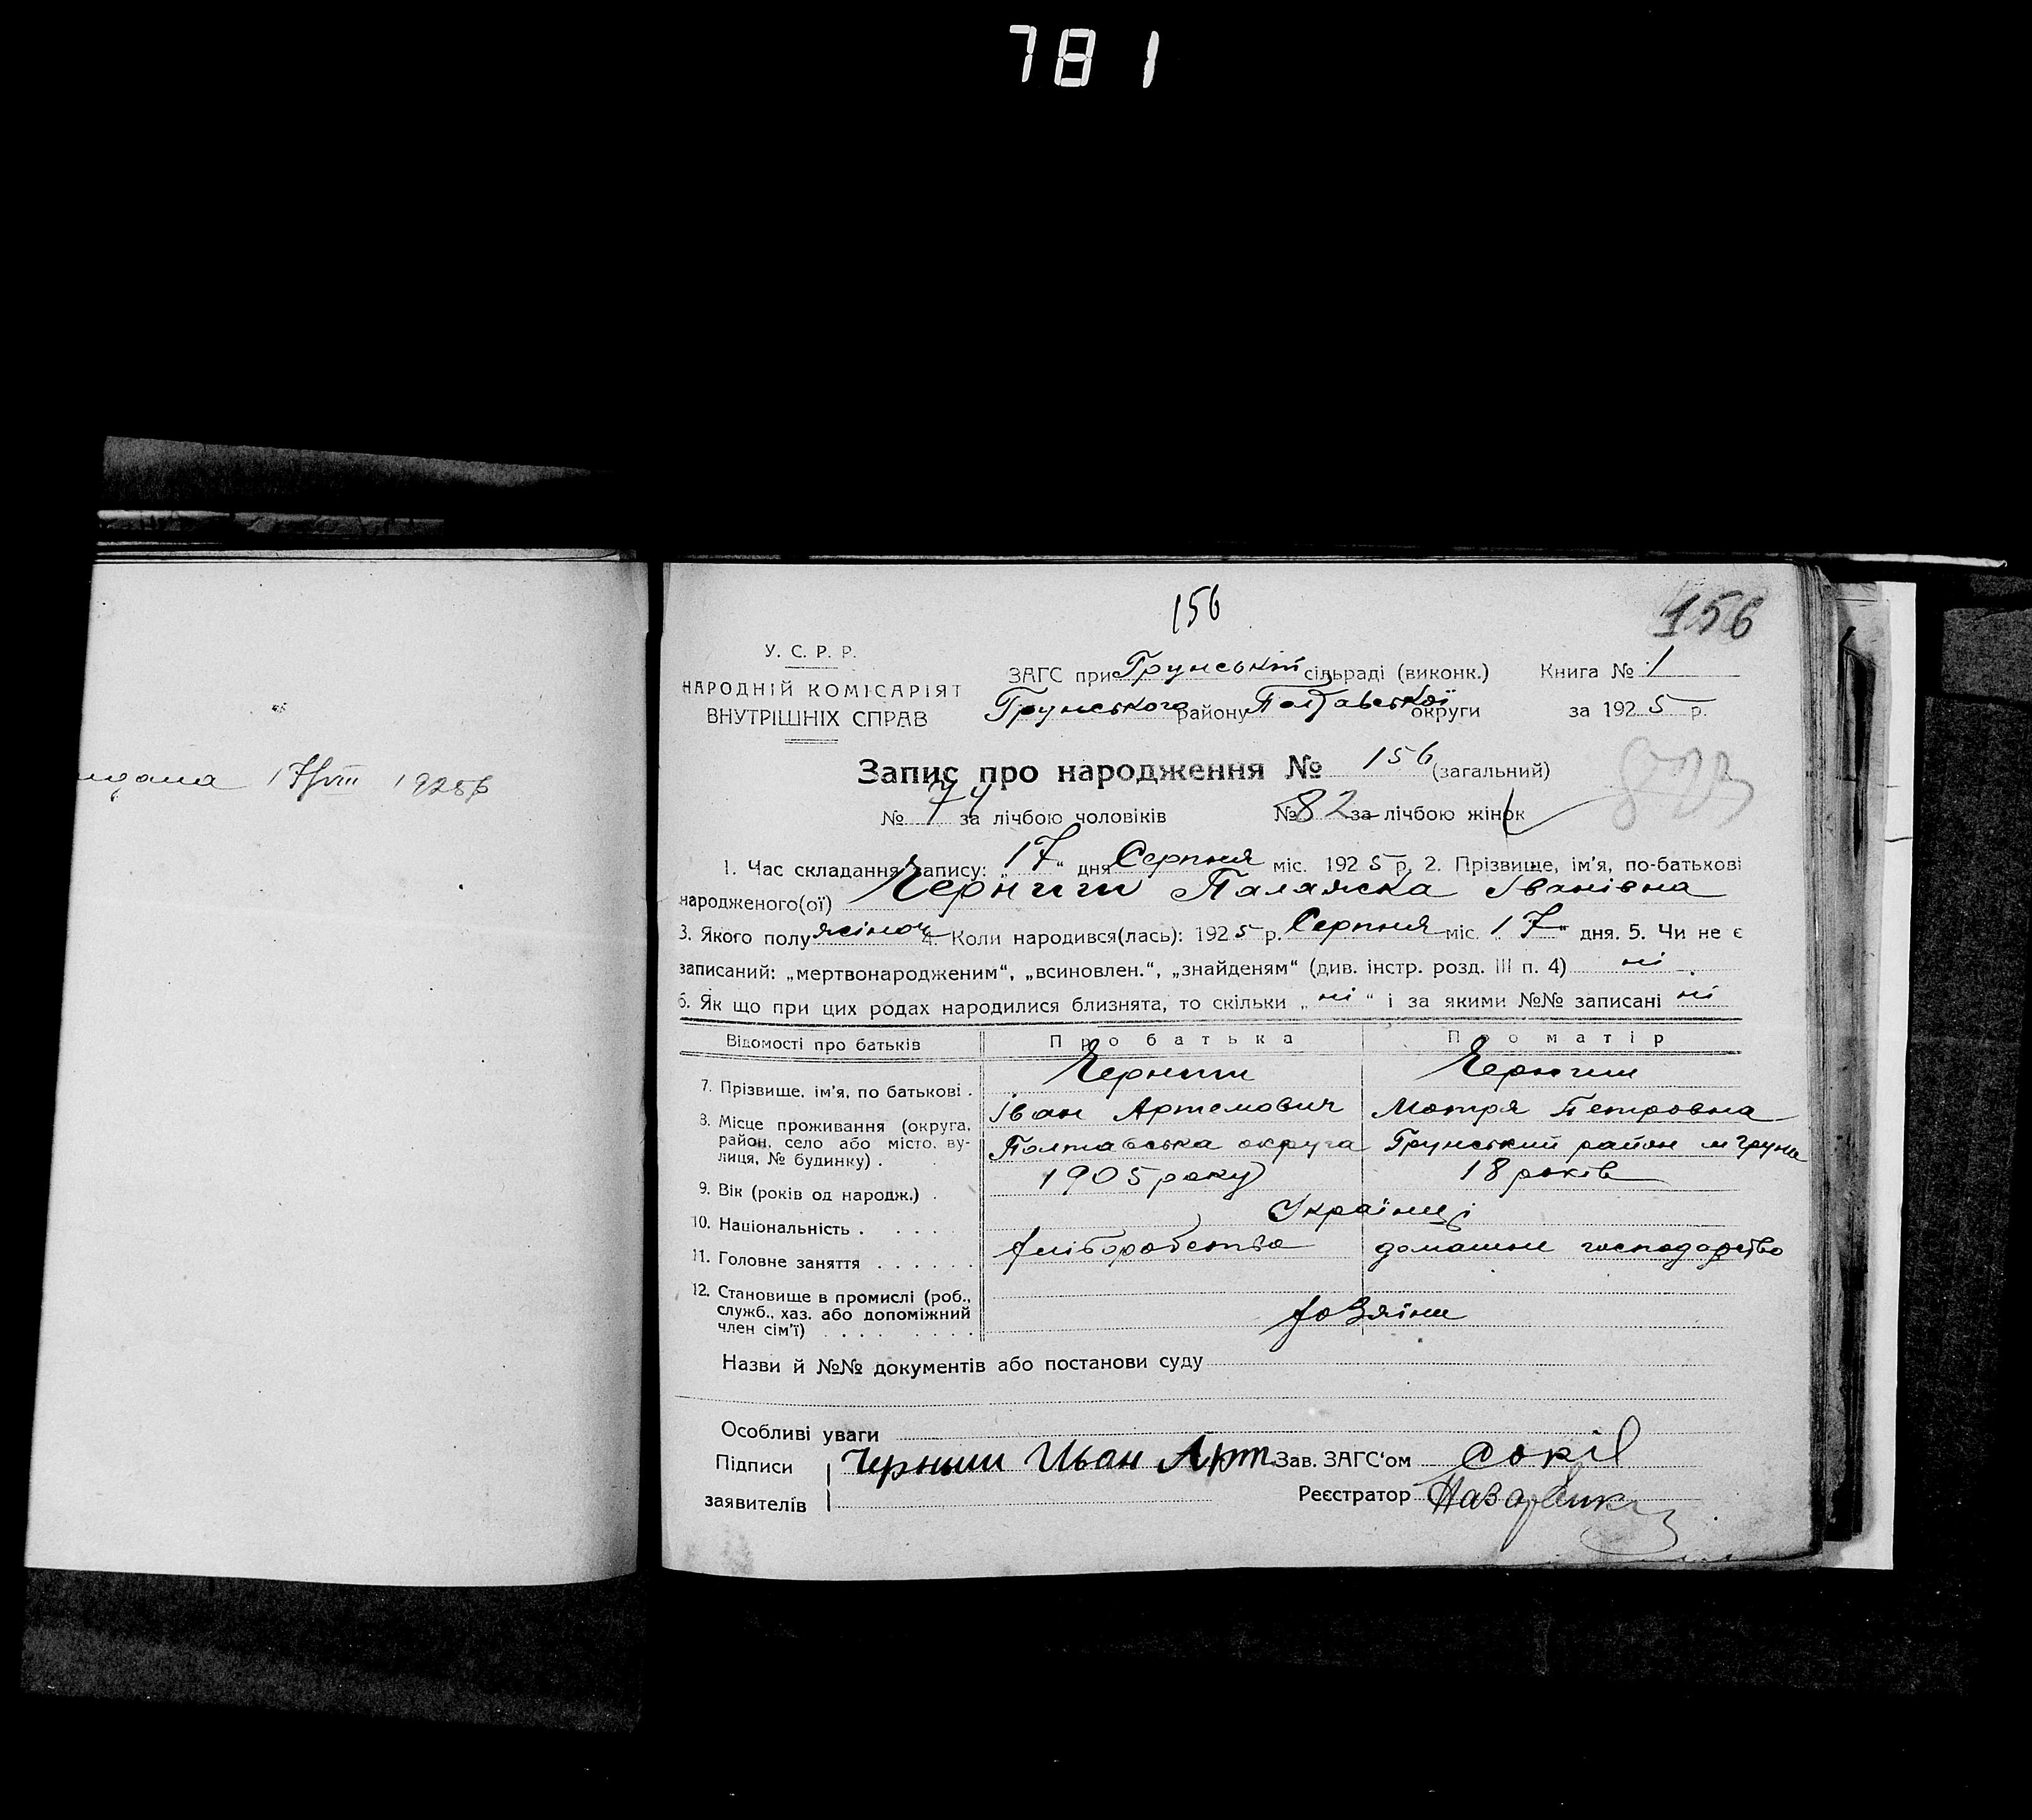 781
156
156
У. С. Р. Р.
НАРОДНІЙ КОМІСАРІЯТ
ВНУТРІШНІХ СПРАВ
ЗАГС при Грунській сільраді (виконк.)
Грунського району Полтавської округи
Книга № 1
за 1925 р.
17/VIII 1925 р
Запис про народження № 156 (загальний)
№ 74 за лічбою чоловіків № 82 за лічбою жінок
1. Час складання запису: „17“ дня Серпня міс. 1925 р. 2. Прізвище, ім’я, по-батькові
народженого(ої) Черниш Палажка Іванівна
3. Якого полу жіноч 4. Коли народився(лась): 1925 р. Серпня міс. „17“ дня. 5. Чи не є
записаний: „мертвонародженим“, „всиновлен.“, „знайденям“ (див. інстр. розд. III п. 4) ні
6. Як що при цих родах народилися близнята, то скільки „ні“ і за якими №№ записані ні
Відомості про батьків Про батька Про матір
7. Прізвище, ім’я, по батькові . Черниш Черниш
Іван Артемович Мотря Петровна
8. Місце проживання (округа, район, село або місто, вулиця, № будинку) . Полтавська округа Грунський район м Грунь
9. Вік (років од народж.) . 1905 року 18 років
10. Національність . . . . . Українці
11. Головне заняття . . . . . . Хліборобство домашнє господарство
12. Становище в промислі (роб., служб., хаз. або допоміжний член сім’ї) . . . . . . . . . Хозяїни
Назви й №№ документів або постанови суду
Особливі уваги
Підписи заявителів Черныш Иван Арт.
Зав. ЗАГС‘ом Сокіл
Реєстратор